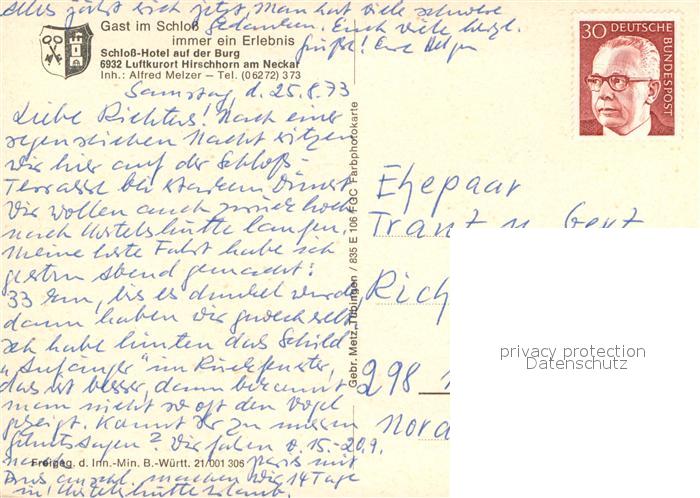 alles fährt sich jetzt. Man hat viele schwere
Gedanken. Euch viele herzl.
Grüße! Eure Helga
Gast im Schloß
immer ein Erlebnis
Schloß-Hotel auf der Burg
6932 Luftkurort Hirschhorn am Neckar
Inh.: Alfred Melzer – Tel. (06272) 373
Samstag d. 25.8.73
Liebe Richters! Nach einer
regenreichen Nacht sitzen
wir hier auf der Schloß-
Terrasse bei starkem Dunst
Wir wollen auch
nach
Meine erste Fahrt habe ich
gestern Abend gemacht:
33 km, bis es dunkel wurde,
dann haben wir gewechselt.
Ich habe hinten das Schild
„Anfänger" im Rückfenster,
das ist besser, dann bekommt
man nicht so oft den Vogel
gezeigt. Kommt Ihr zu
Wir fahren v. 15.-20.9.
nach Paris mit
machen wir 14 Tage
in
Freigeg. d. Inn.-Min. B.-Württ. 21/001 306
Gebr. Metz, Tübingen / 835 E 106 FGC Farbphotokarte
30 DEUTSCHE
BUNDESPOST
Ehepaar
Franz u. Gert
Rich
298
Nord
privacy protection
Datenschutz